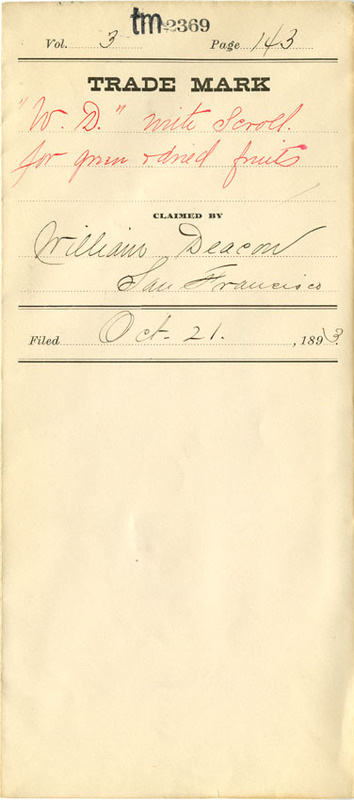 tm 2369
Vol. 3 Page 143
TRADE MARK
"W. D." with Scroll.
for green & dried fruits
CLAIMED BY
William Deacon
San Francisco
Filed Oct. 21. , 1893.